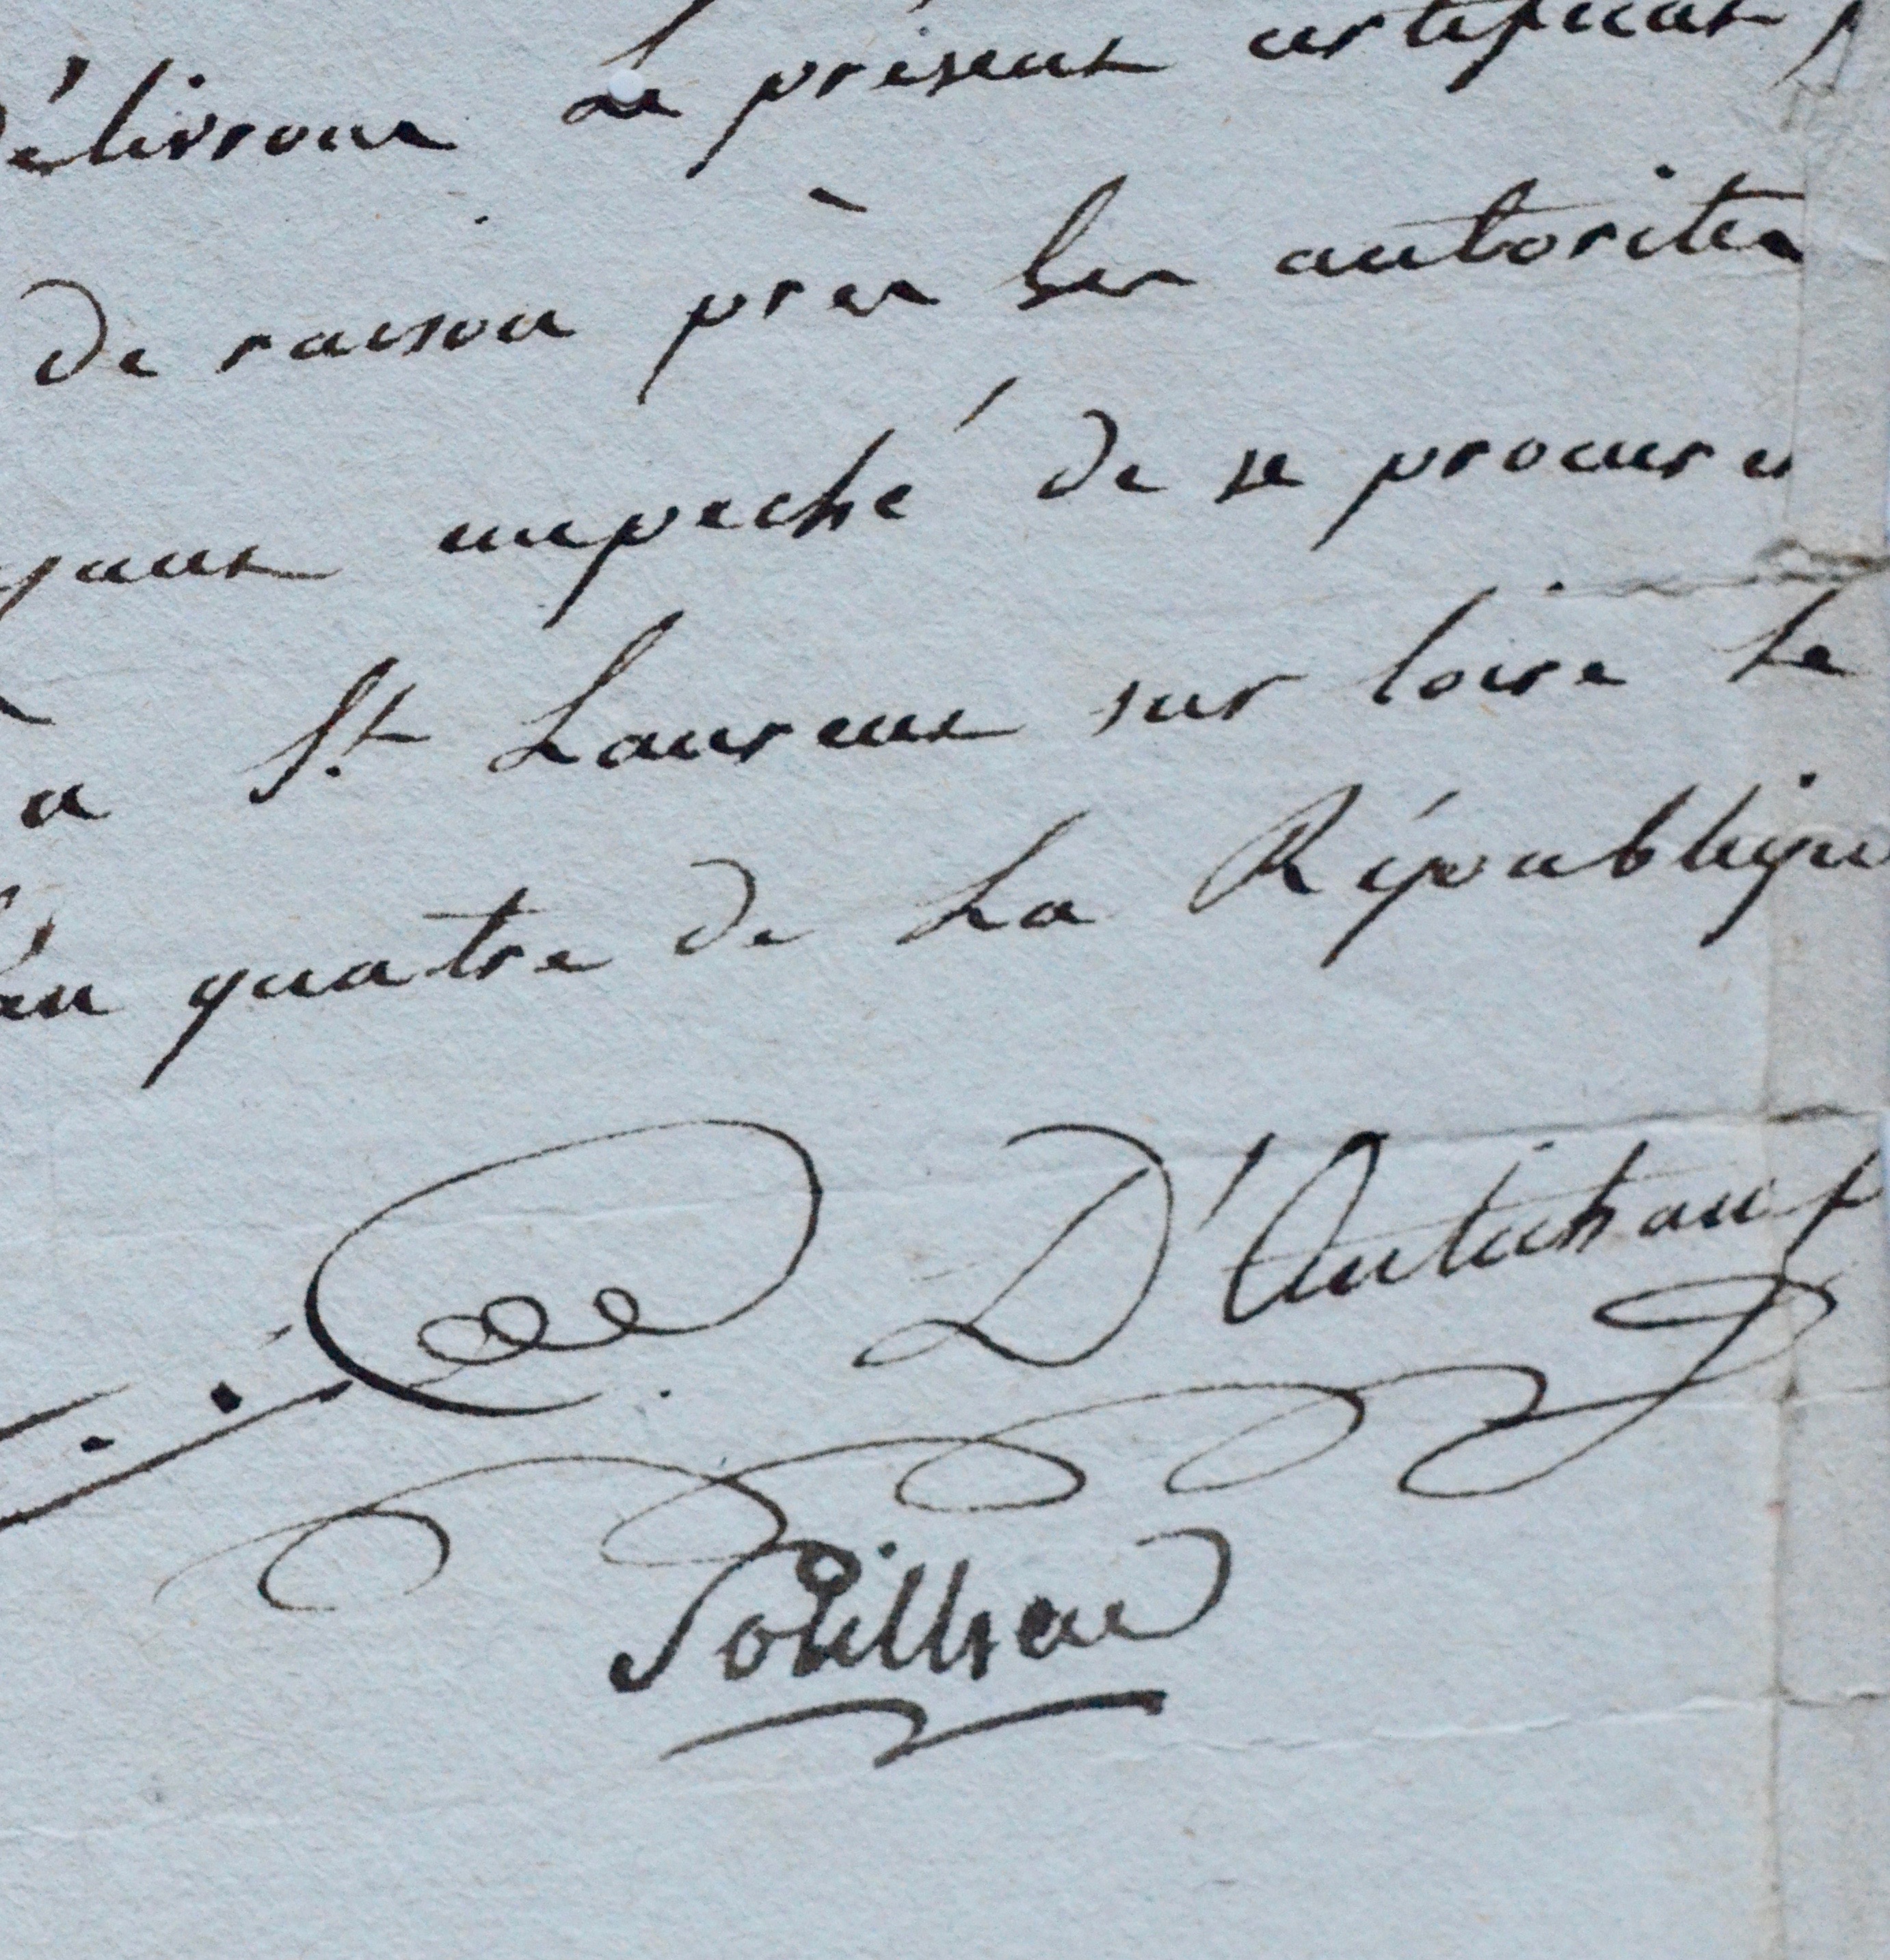 délivrons Le présent certificat
De raison près Les autorités
yant empeché De se procurer
à St Laurent sur loire Le
an quatre de La République
D'Autichamp
Souilleau